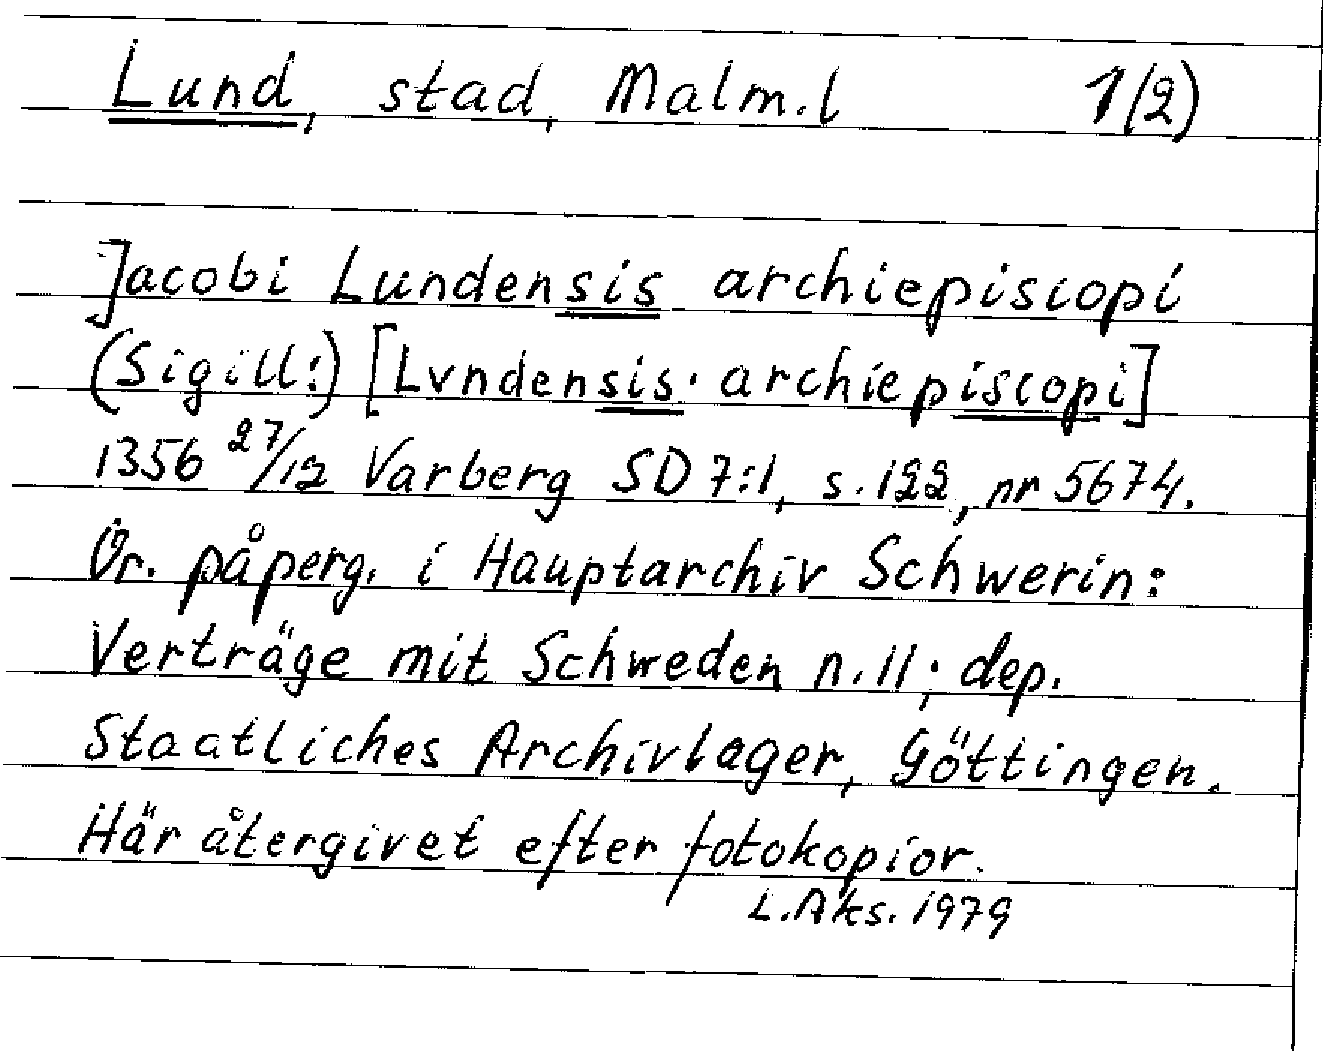 Lund, stad, Malm.l 1(2)
Jacobi Lundensis archiepiscopi
(Sigill:) [Lvndensis· archiepiscopi]
1356 27/12 Varberg SD 7:1, s. 122, nr 5674.
Or. på perg. i Hauptarchiv Schwerin:
Verträge mit Schweden n. 11; dep.
Staatliches Archivlager, Göttingen.
Här återgivet efter fotokopior.
L.Aks. 1979